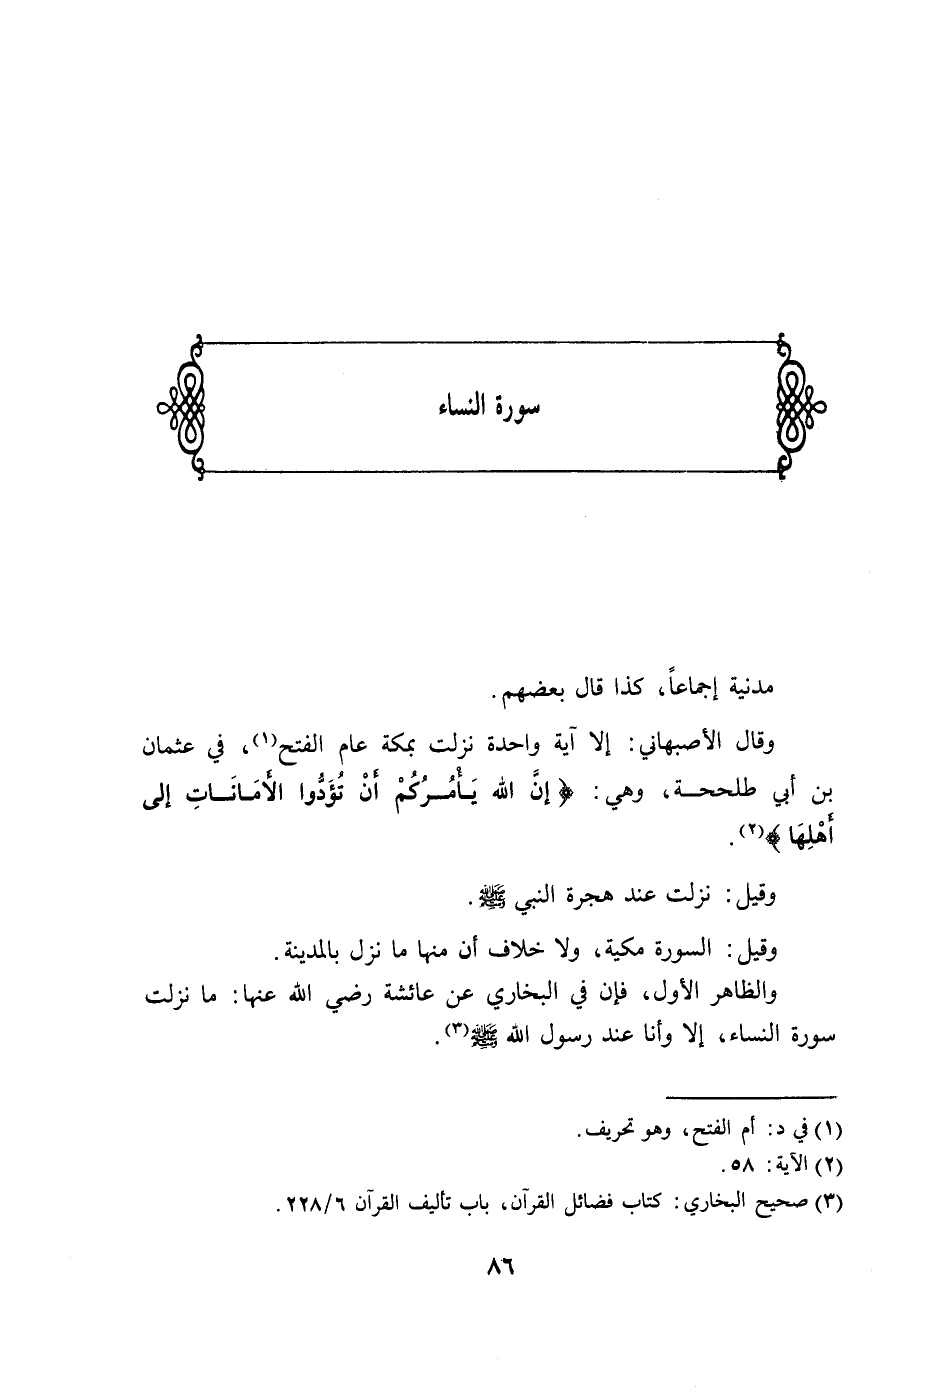 سورة النساء
مدنية إجماعاً، كذا قال بعضهم.
وقال الأصبهاني: إلا آية واحدة نزلت بمكة عام الفتح(١)، في عثمان
بن أبي طلححـة، وهي: ﴿ إنَّ الله يَـأْمُـرُكُمْ أَنْ تُؤَدُّوا الأَمَـانَـاتِ إلى
أَهْلِهَا ﴾(٢).
وقيل: نزلت عند هجرة النبي ﷺ.
وقيل: السورة مكية، ولا خلاف أن منها ما نزل بالمدينة.
والظاهر الأول، فإن في البخاري عن عائشة رضي الله عنها: ما نزلت
سورة النساء، إلا وأنا عند رسول الله ﷺ(٣).
(١) في د: أم الفتح، وهو تحريف.
(٢) الآية: ٥٨.
(٣) صحيح البخاري: كتاب فضائل القرآن، باب تأليف القرآن ٢٢٨/٦.
٨٦